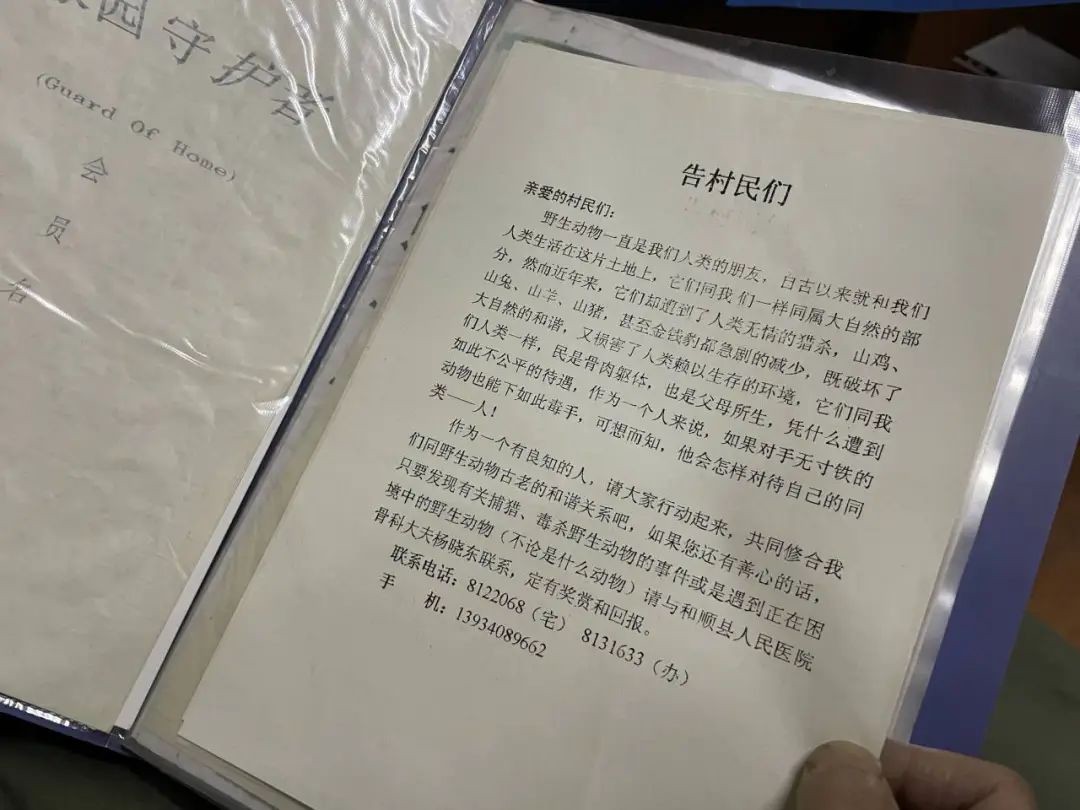 园守护者
(Guard Of Home)
会
员
名
告村民们
亲爱的村民们：
野生动物一直是我们人类的朋友，日古以来就和我们
人类生活在这片土地上，它们同我们一样同属大自然的部
分，然而近年来，它们却遭到了人类无情的猎杀，山鸡、
山兔、山羊、山猪，甚至金钱豹都急剧的减少，既破坏了
大自然的和谐，又损害了人类赖以生存的环境，它们同我
们人类一样，民是骨肉躯体，也是父母所生，凭什么遭到
如此不公平的待遇，作为一个人来说，如果对手无寸铁的
动物也能下如此毒手，可想而知，他会怎样对待自己的同
类——人！
作为一个有良知的人，请大家行动起来，共同修合我
们同野生动物古老的和谐关系吧，如果您还有善心的话，
只要发现有关捕猎、毒杀野生动物的事件或是遇到正在困
境中的野生动物（不论是什么动物）请与和顺县人民医院
骨科大夫杨晓东联系，定有奖赏和回报。
联系电话：8122068（宅） 8131633（办）
手 机：13934089662